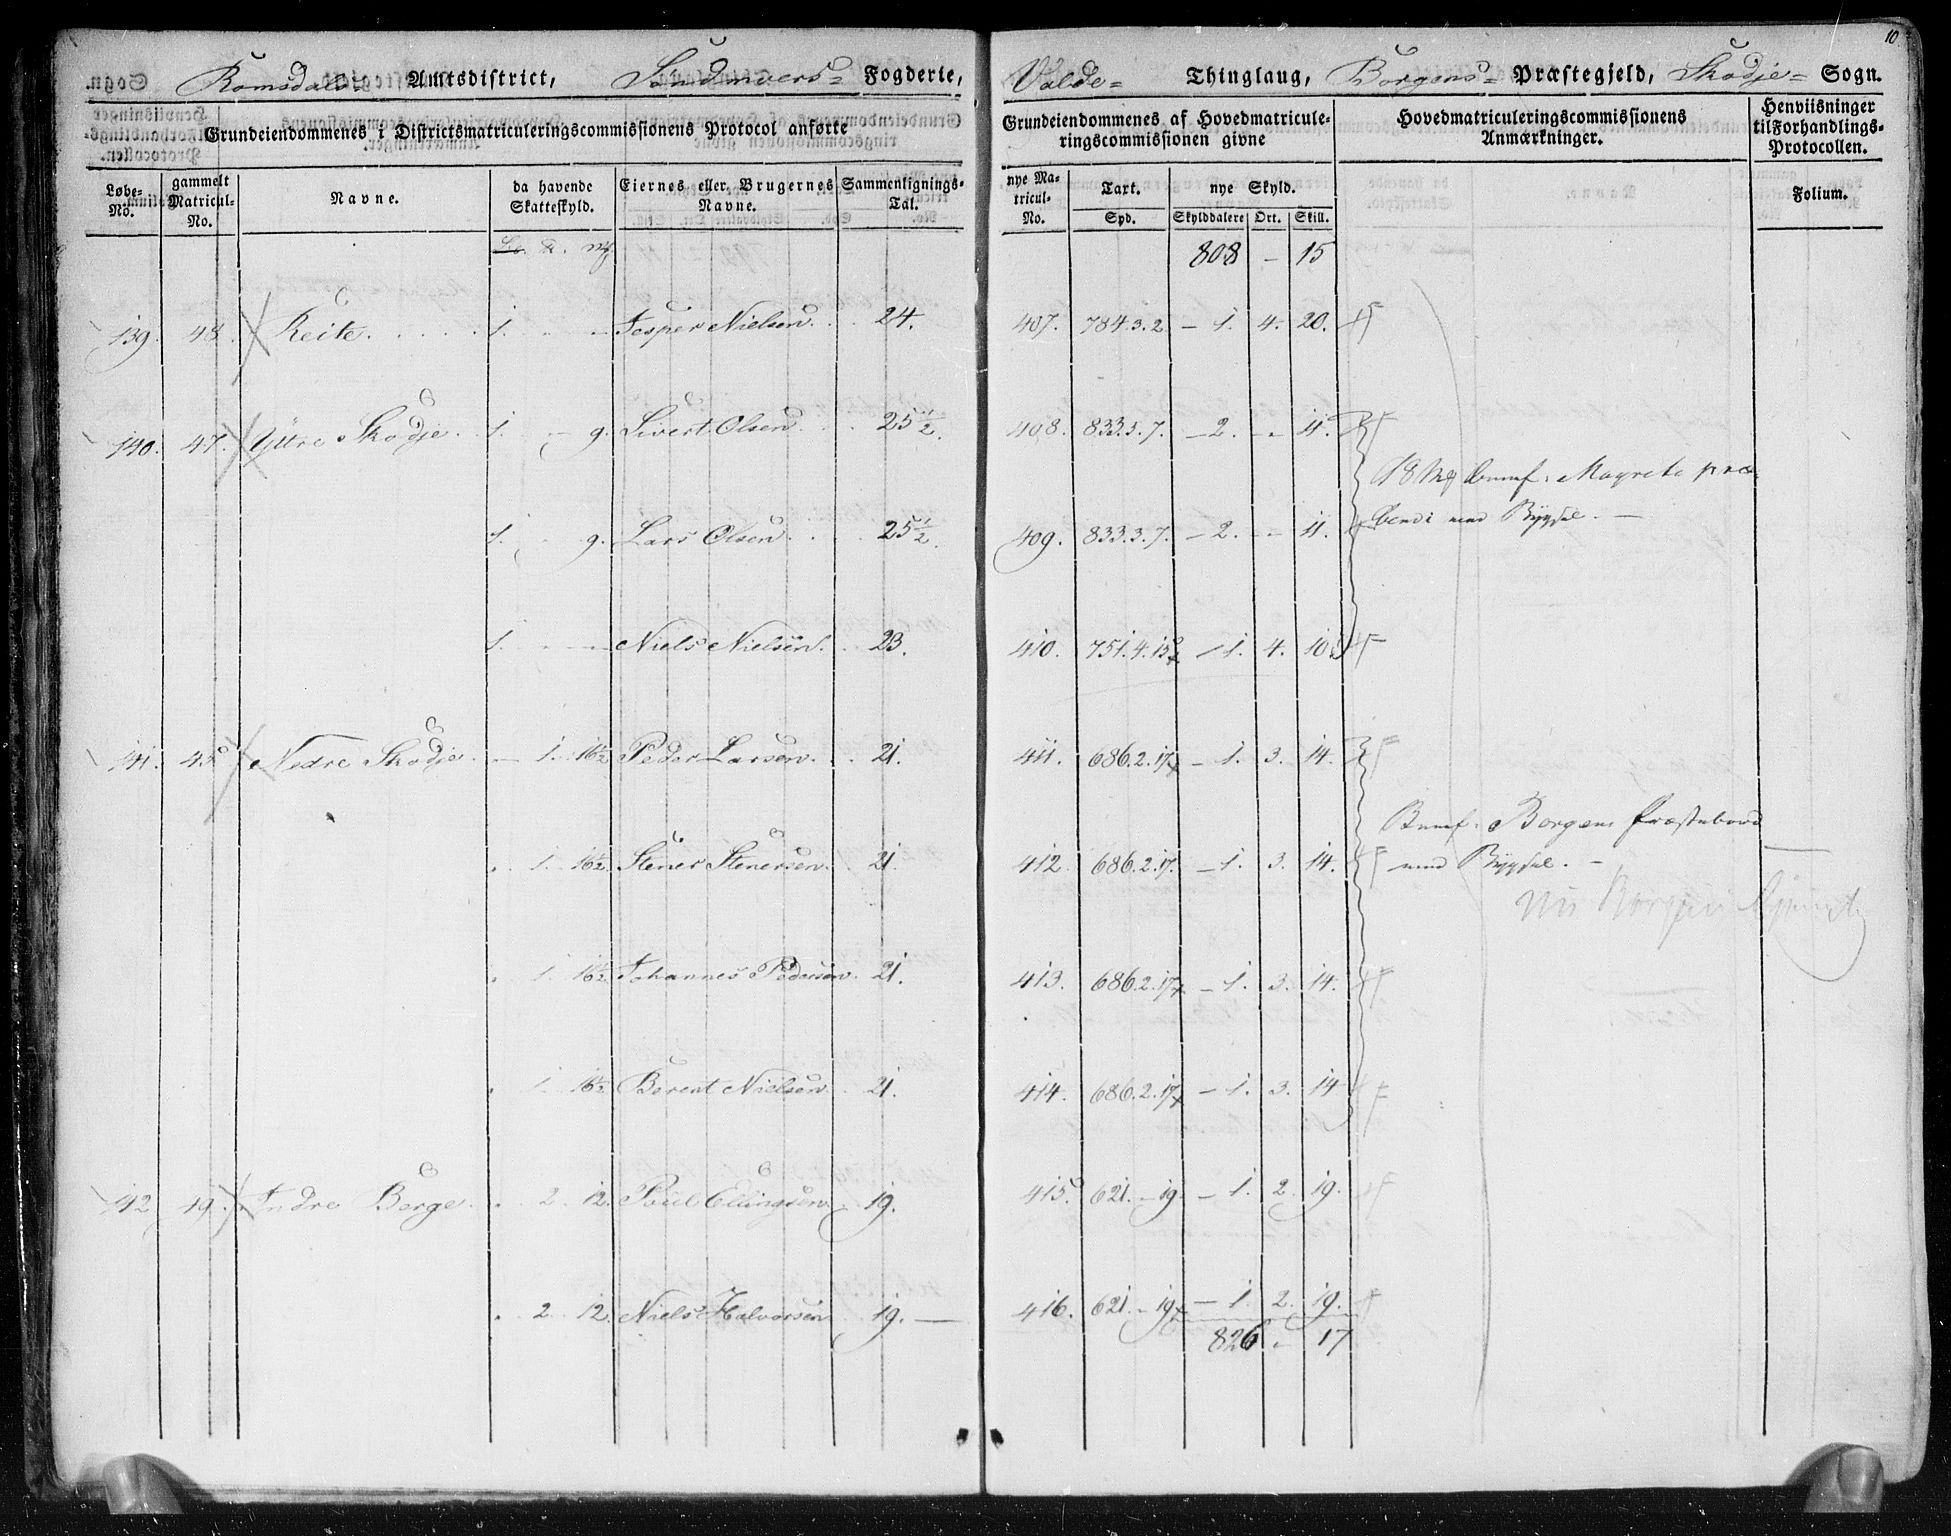 Romsdals Amtsdistrict, Söndmoers Fogderie, Volde= Thinglaug, Borgens= Præstegjeld, Skodje= Sogn.
10
Grundeiendommenes i Districtsmatriculeringscommissionens Protocol anførte
Grundeiendommenes af Hovedmatriculeringscommissionen givne
Hovedmatriculeringscommissionens Anmærkninger.
Henviisninger til Forhandlings-Protocollen.
Løbe-No. gammelt Matricul-No. Navne. da havende Skatteskyld. Eiernes eller Brugernes Navne. Sammenlignings-Tal. nye Matricul-No. Taxt. nye Skyld. Folium.
Spd. Skylddalere Ort. Skill.
808 - 15
139. 48. Reite. 1. - - Jesper Nielsen. 24. 407. 784.3.2 - 1. 4. 20.
140. 47. Yttre Skodje. 1. - 9. Sivert Olsen. 25 1/2. 408. 833.3.7. - 2. - 11.
18 Mk Benef. Magreta præ-
1. - 9. Lars Olsen. 25 1/2. 409. 833.3.7. - 2. - 11.
bende med Bygsel. -
1. - - Niels Nielsen. 23. 410. 751.4.15 - 1. 4. 10.
141. 45 Nedre Skodje. - 1. 16 1/2 Peder Larsen. 21. 411. 686.2.17 - 1. 3. 14.
Benef. Borgens Præstebord
. 1. 16 1/2 Stener Stenersen. 21. 412. 686.2.17. - 1. 3. 14.
med Bygsel. -
. 1. 16 1/2 Johannes Pedersen. 21. 413. 686.2.17 - 1. 3. 14.
. 1. 16 1/2 Berent Nielsen. 21. 414. 686.2.17 - 1. 3. 14
142 49. Indre Berge. . 2. 12. Poul Ellingsen. 19. 415. 621. - 19. - 1. 2. 19.
. 2. 12. Niels Halvorsen 19. 416. 621. - 19 - 1. 2. 19.
826 - 17